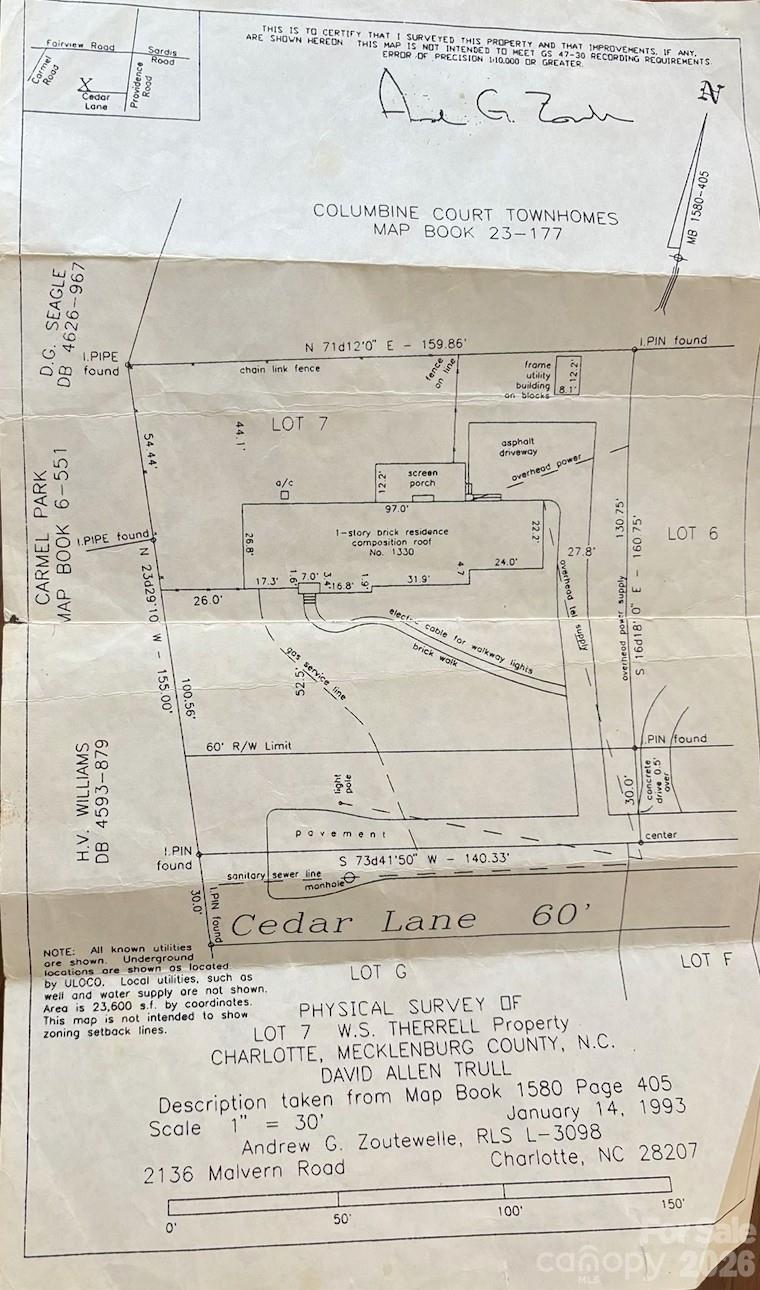 THIS IS TO CERTIFY THAT I SURVEYED THIS PROPERTY AND THAT IMPROVEMENTS, IF ANY,
ARE SHOWN HEREON THIS MAP IS NOT INTENDED TO MEET GS 47-30 RECORDING REQUIREMENTS.
ERROR OF PRECISION 1:10,000 OR GREATER.
Fairview Road
Sardis
Road
Carmel
Road
Providence
Road
X
Cedar
Lane
N
MB 1580-405
COLUMBINE COURT TOWNHOMES
MAP BOOK 23-177
D.G. SEAGLE
DB 4626-967
I.PIPE
found
N 71d12'0" E - 159.86'
I.PIN found
chain link fence
fence
on line
frame
utility
building
on blocks
12.2'
8.1'
LOT 7
44.1'
54.44'
asphalt
driveway
overhead power
a/c
12.2'
screen
porch
97.0'
CARMEL PARK
MAP BOOK 6-551
I.PIPE found
26.8'
1-story brick residence
composition roof
No. 1330
22.2'
27.8'
130.75'
LOT 6
S 16d18'0" E - 160.75'
overhead power supply
overhead tel supply
N 23d29'10" W - 155.00'
26.0'
17.3'
1.6'
7.0'
3.4'
16.8'
1.9'
31.9'
4.7'
24.0'
electric cable for walkway lights
brick walk
gas service line
52.5'
100.56'
60' R/W Limit
I.PIN found
H.V. WILLIAMS
DB 4593-879
light
pole
30.0'
concrete
drive 0.5'
over
pavement
center
I.PIN
found
S 73d41'50" W - 140.33'
sanitary sewer line
manhole
30.0'
I.PIN found
Cedar Lane 60'
LOT G
LOT F
NOTE: All known utilities
are shown. Underground
locations are shown as located
by ULOCO. Local utilities, such as
well and water supply are not shown.
Area is 23,600 s.f. by coordinates.
This map is not intended to show
zoning setback lines.
PHYSICAL SURVEY OF
LOT 7 W.S. THERRELL Property
CHARLOTTE, MECKLENBURG COUNTY, N.C.
DAVID ALLEN TRULL
Description taken from Map Book 1580 Page 405
Scale 1" = 30'
January 14, 1993
Andrew G. Zoutewelle, RLS L-3098
2136 Malvern Road
Charlotte, NC 28207
0'
50'
100'
150'
For Sale
canopy 2026
MLS